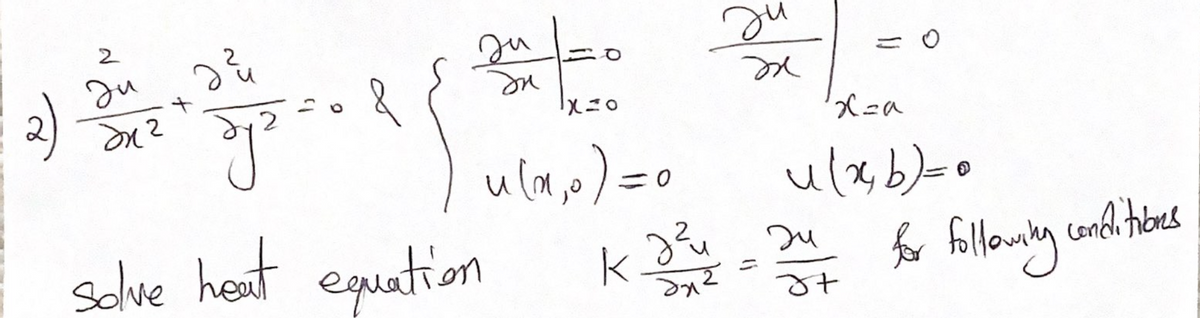 2) ∂²u/∂x² + ∂²u/∂y² = 0 & { ∂u/∂x |x=0 = 0 ∂u/∂x |x=a = 0
u(x,0) = 0 u(x,b) = 0
solve heat equation K ∂²u/∂x² = ∂u/∂t for following conditions